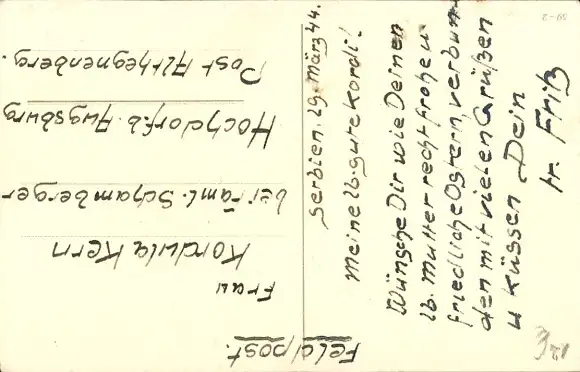 Feldpost.
Frau
Kordula Kern
bei Faml. Schamberger
Hochdorf b. Augsburg
Post Althegnenberg.
Serbien, 29. März 44.
Meine lb. gute Kordi!
Wünsche Dir wie Deinen
lb. Mutter recht frohe u
friedliche Ostern, verbun-
den mit vielen Grüßen
u Küssen Dein
tr. Fritz